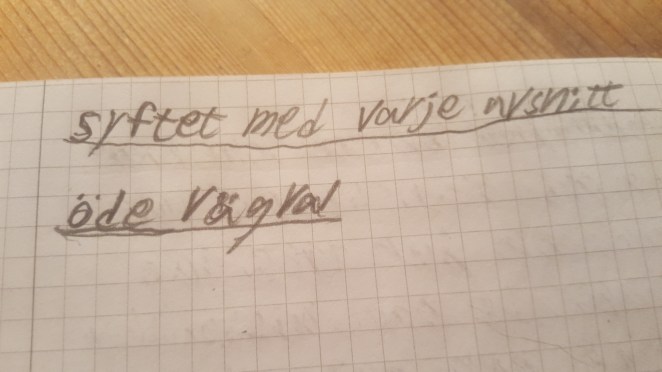 syftet med varje avsnitt
öde vägval